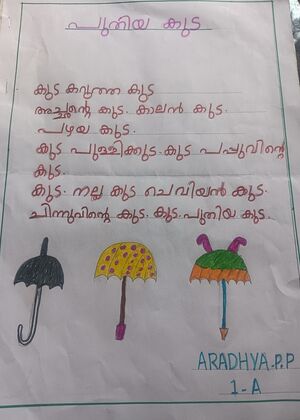 പുതിയ കുട
കുട കറുത്ത കുട
അച്ഛന്റെ കുട. കാലൻ കുട.
പഴയ കുട.
കുട പുള്ളിക്കുട കുട പപ്പുവിന്റെ
കുട.
കുട. നല്ല കുട ചെവിയൻ കുട.
ചിന്നുവിന്റെ കുട. കുട. പുതിയ കുട.
ARADHYA.P.P
1-A